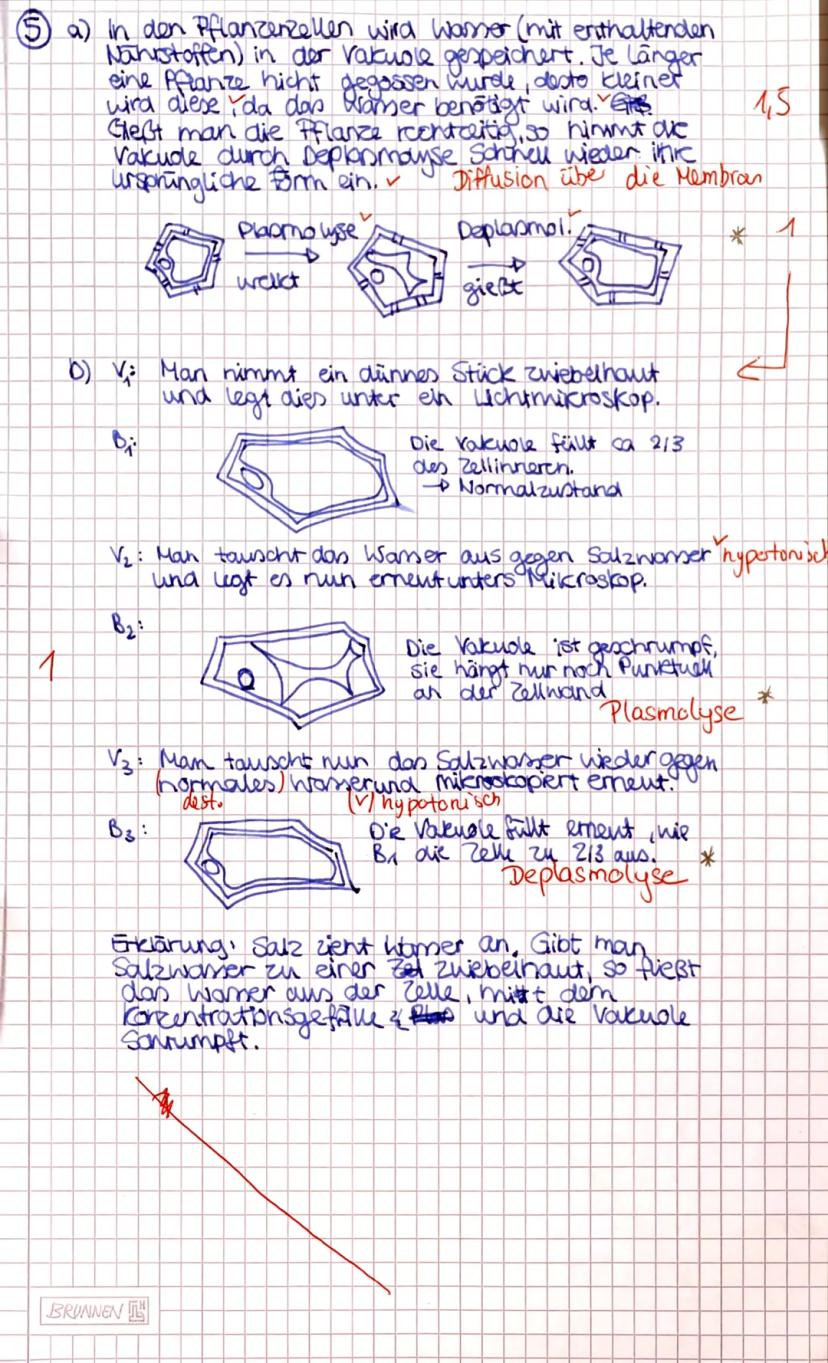 5 a) In den Pflanzenzellen wird Wasser (mit enthaltenden
Nährstoffen) in der Vakuole gespeichert. Je länger
eine Pflanze nicht gegossen wurde, desto kleiner
wird diese ✓, da das Wasser benötigt wird. ✓ 1,5
Gießt man die Pflanze rechtzeitig, so nimmt die
Vakuole durch Deplasmolyse schnell wieder ihre
ursprüngliche Form ein. ✓ Diffusion über die Membran
Plasmolyse ✓ Deplasmol. ✓ * 1
welkt gießt
b) V₁: Man nimmt ein dünnes Stück Zwiebelhaut
und legt dies unter ein Lichtmikroskop.
B₁: Die Vakuole füllt ca 2/3
des Zellinneren.
→ Normalzustand
V₂: Man tauscht das Wasser aus gegen Salzwasser ✓ hypertonisch
und legt es nun erneut unters Mikroskop.
B₂:
Die Vakuole ist geschrumpf,
1 sie hängt nur noch Punktuell
an der Zellwand *
Plasmolyse
V₃: Man tauscht nun das Salzwasser wieder gegen
(normales) Wasser und mikroskopiert erneut.
dest. (✓) hypotonisch
B₃: Die Vakuole füllt erneut, wie
B₁ die Zelle zu 2/3 aus. *
Deplasmolyse
Erklärung: Salz zieht Wasser an. Gibt man
Salzwasser zu einer Zwiebelhaut, so fließt
das Wasser aus der Zelle, mit dem
Konzentrationsgefälle und die Vakuole
schrumpft.
BRUNNEN